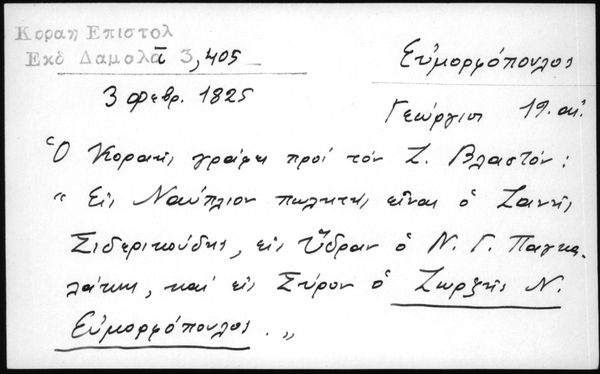 Κοραη Επιστολ
Εκδ Δαμαλᾶ 3,405
Εὐμορφόπουλος
3 φεβρ. 1825
Γεώργιος 19. αἰ.
Ὁ Κοραῆς γράφει πρὸς τὸν Ζ. Βλαστόν:
" Εἰς Ναύπλιον πωλητὴς εἶναι ὁ Ζαννῆς
Σιδερικούδης, εἰς Ὕδραν ὁ Ν. Γ. Παγκα-
λάκης, καὶ εἰς Σύρον ὁ Ζωρζῆς Ν.
Εὐμορφόπουλος. "